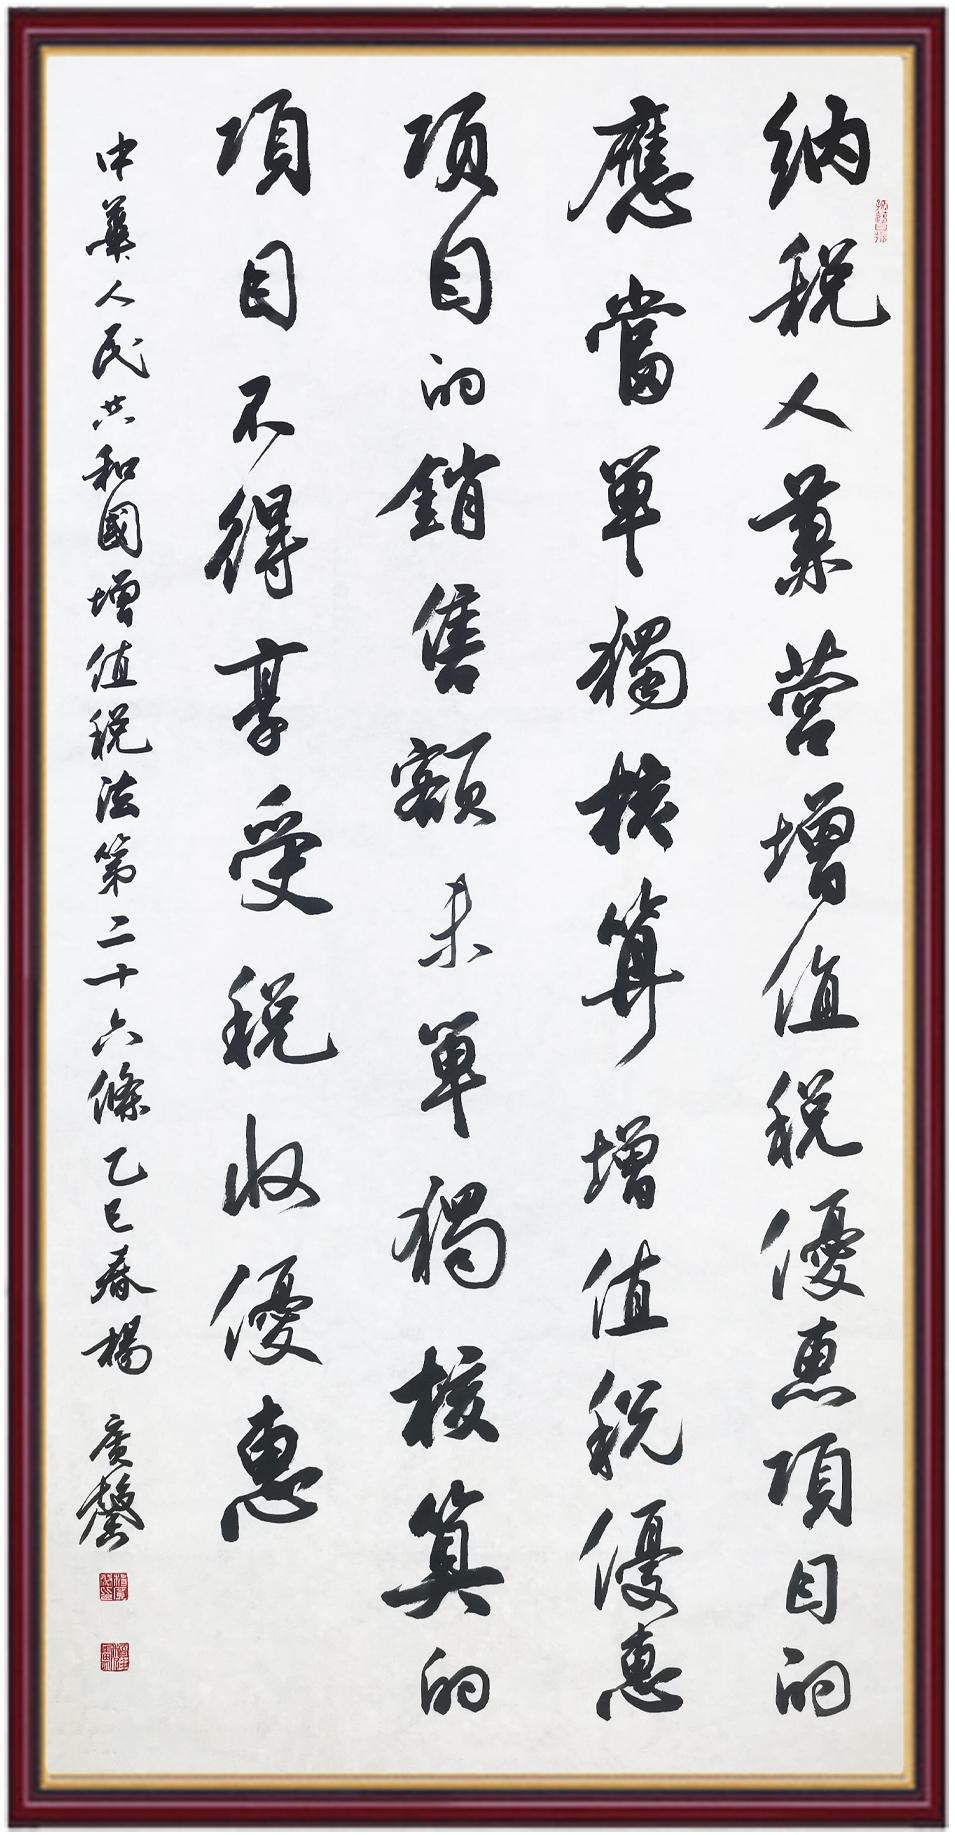 納税人兼营增值税優惠項目的
應當單獨核算增值税優惠
項目的銷售額未單獨核算的
項目不得享受税收優惠
中華人民共和國增值税法第二十六條乙巳春楊廣馨